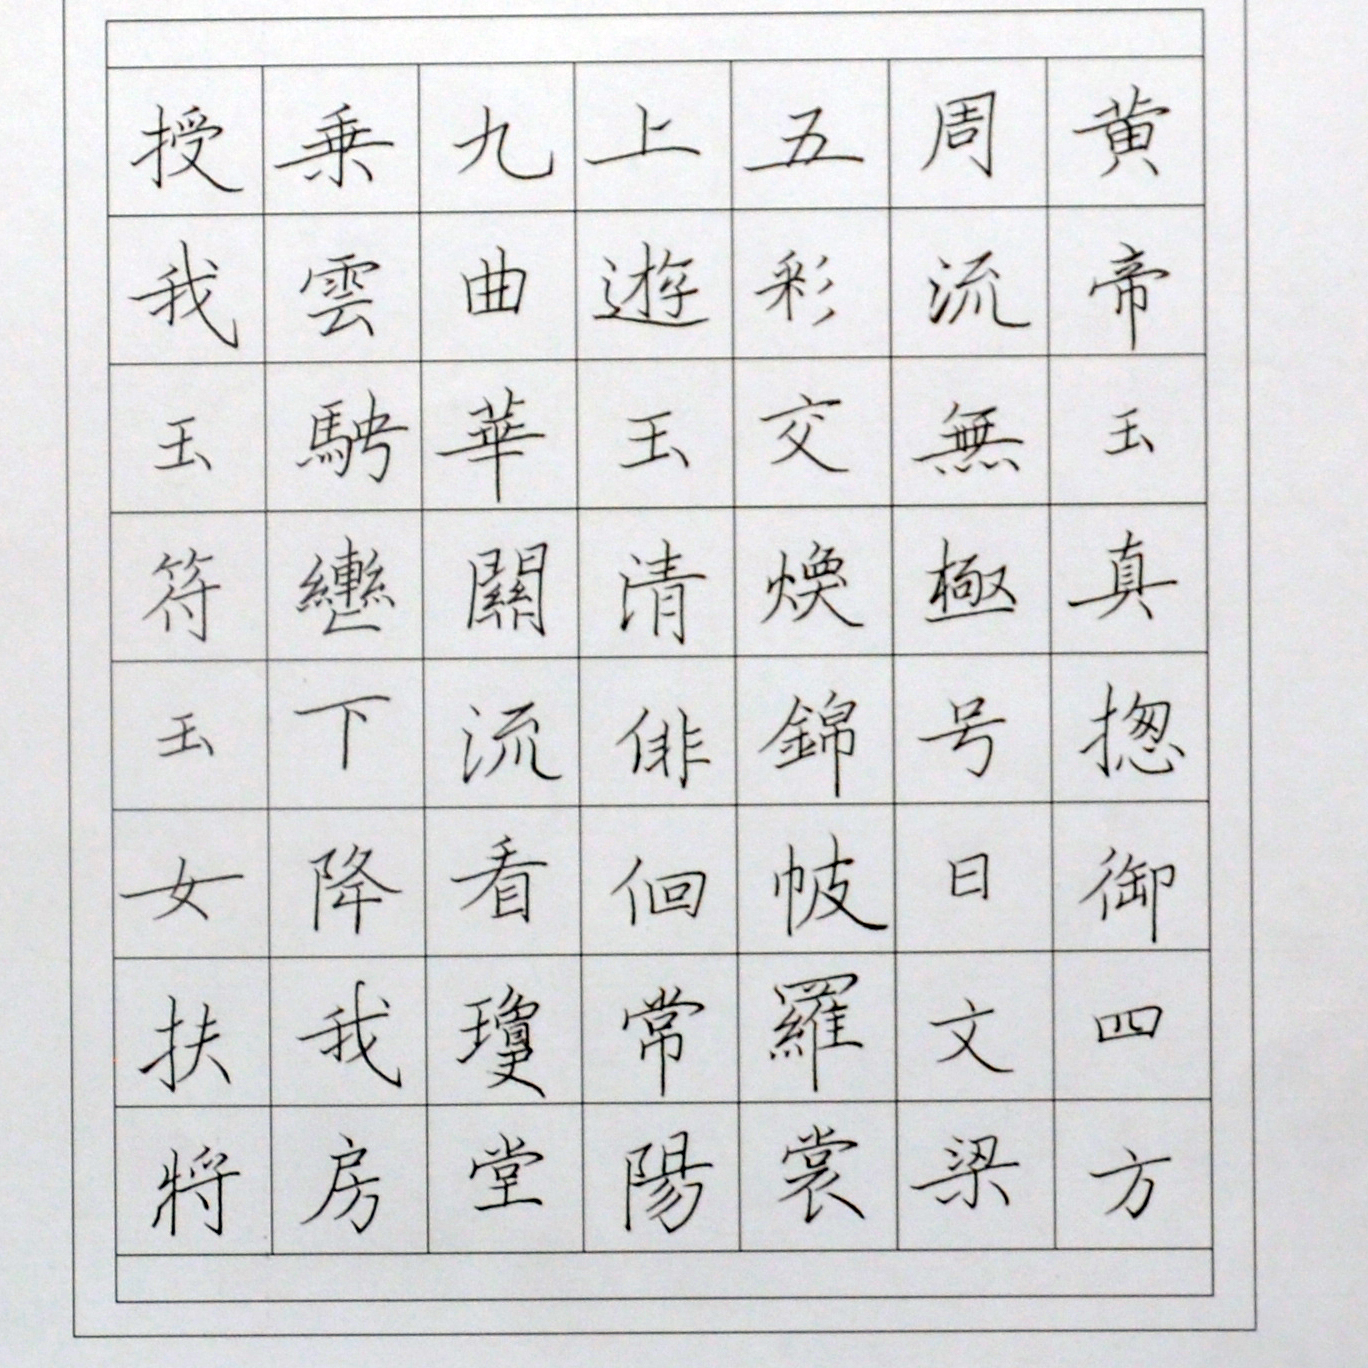 黄帝玉真揔御四方
周流無極号日文梁
五彩交煥錦帔羅裳
上遊玉清俳佪常陽
九曲華關流看瓊堂
乗雲駚轡下降我房
授我玉符玉女扶將